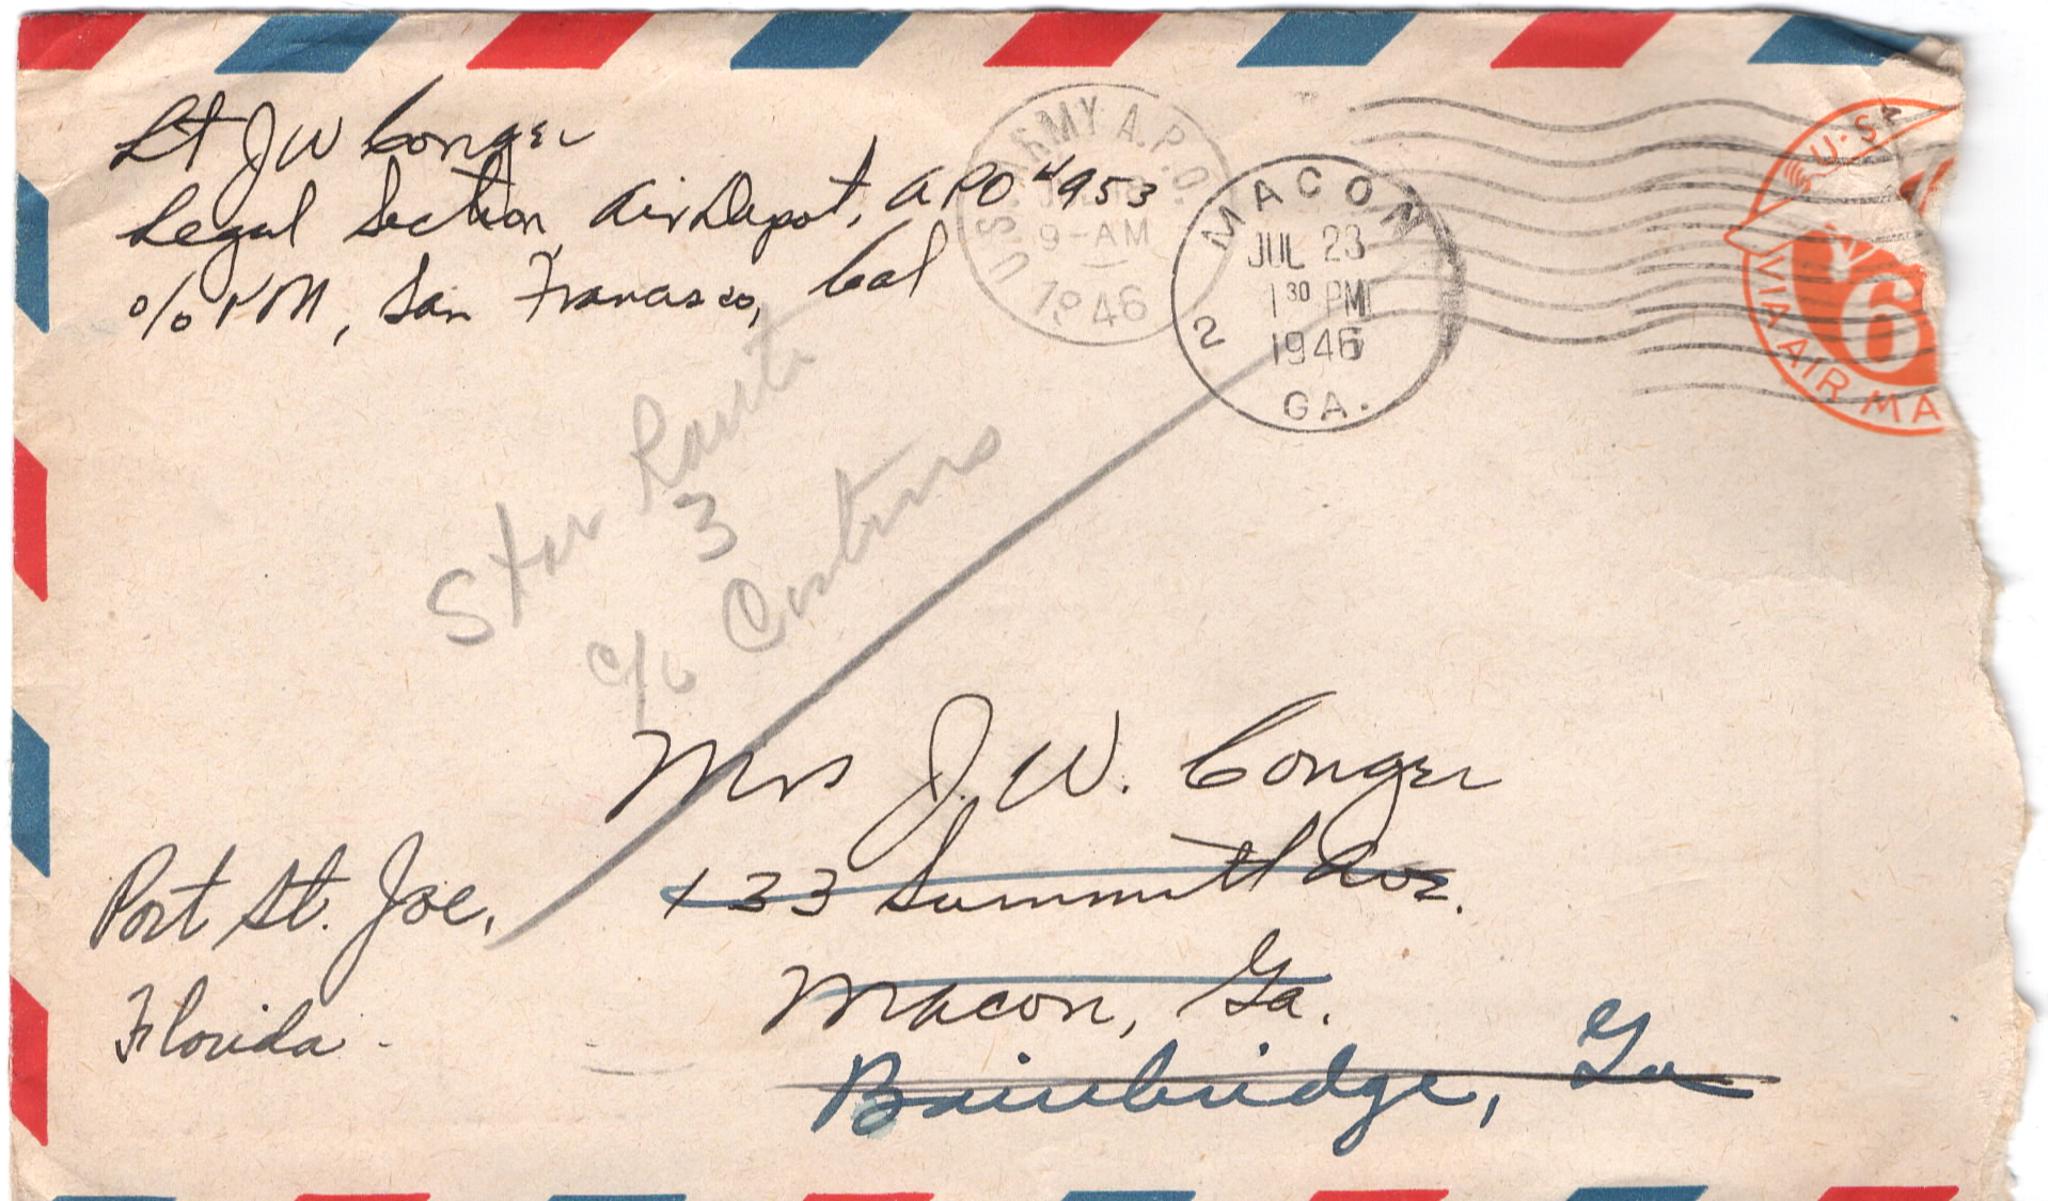 Lt J W Conger
Legal Section, Air Depot, APO #953
c/o PM, San Francisco, Cal
U.S. ARMY A.P.O.
9-AM
1946
MACON
JUL 23
1 30 PM
1946
2
GA.
U·S
6
VIA AIR MA
Star Route
3
c/o
Mrs J. W. Conger
133 Summitt Ave.
Macon, Ga.
Bainbridge, Ga
Port St. Joe,
Florida.